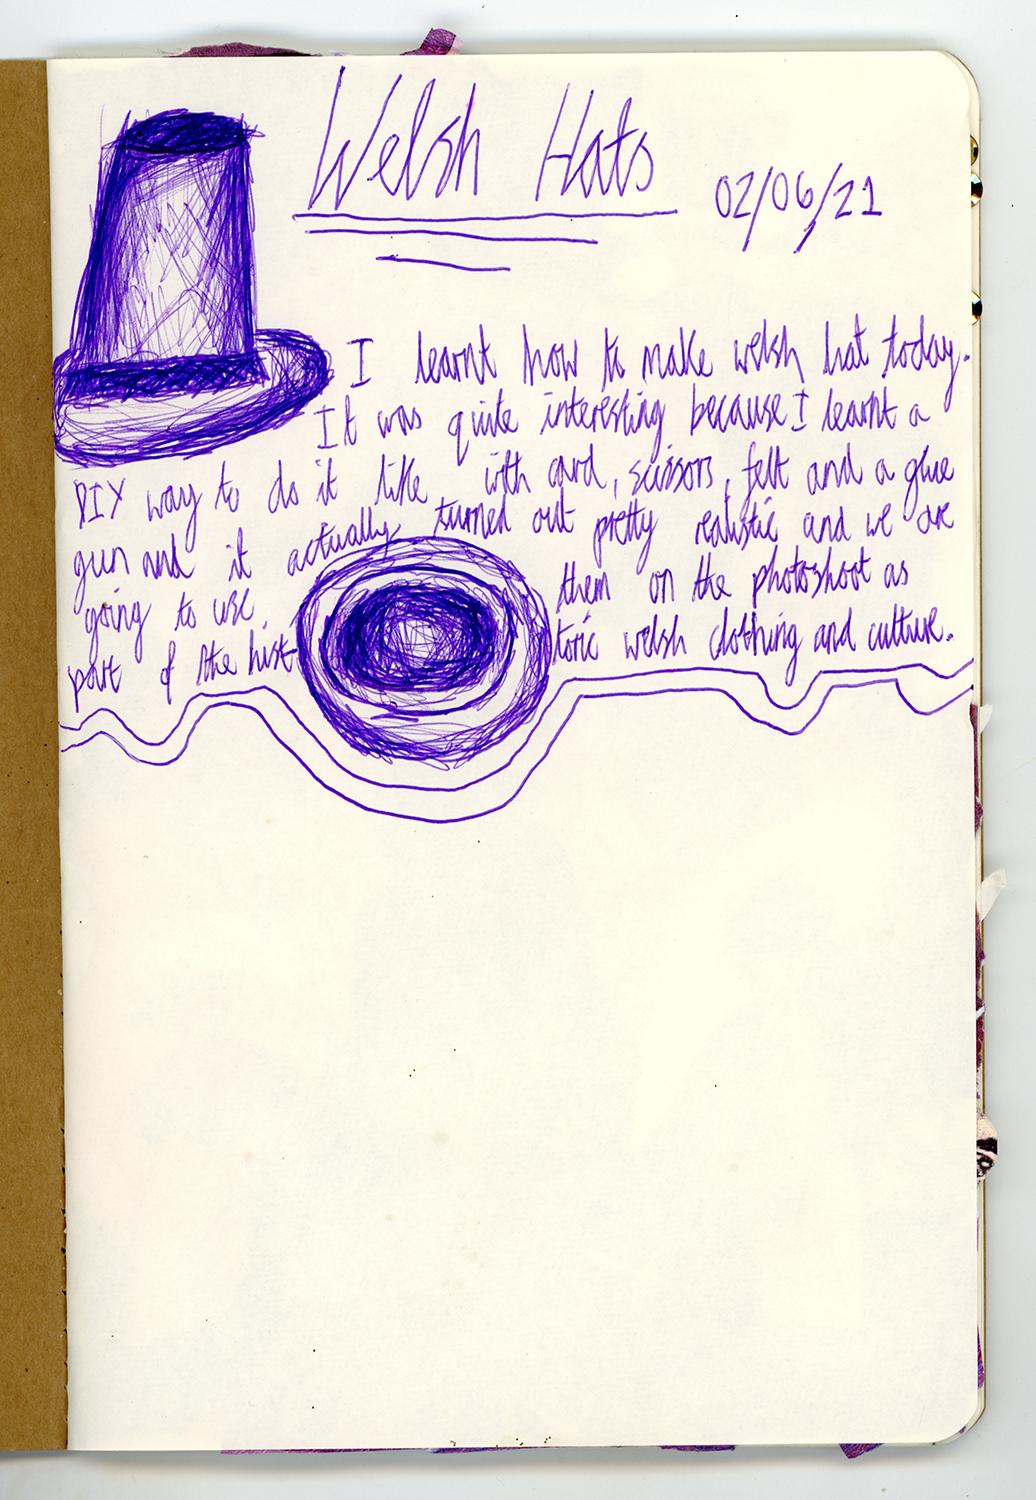 Welsh Hats
02/06/21
I learnt how to make welsh hat today.
It was quite interesting because I learnt a
DIY way to do it like with card, scissors, felt and a glue
gun and it actually turned out pretty realistic and we are
going to use them on the photoshoot as
part of the hist-toric welsh clothing and culture.